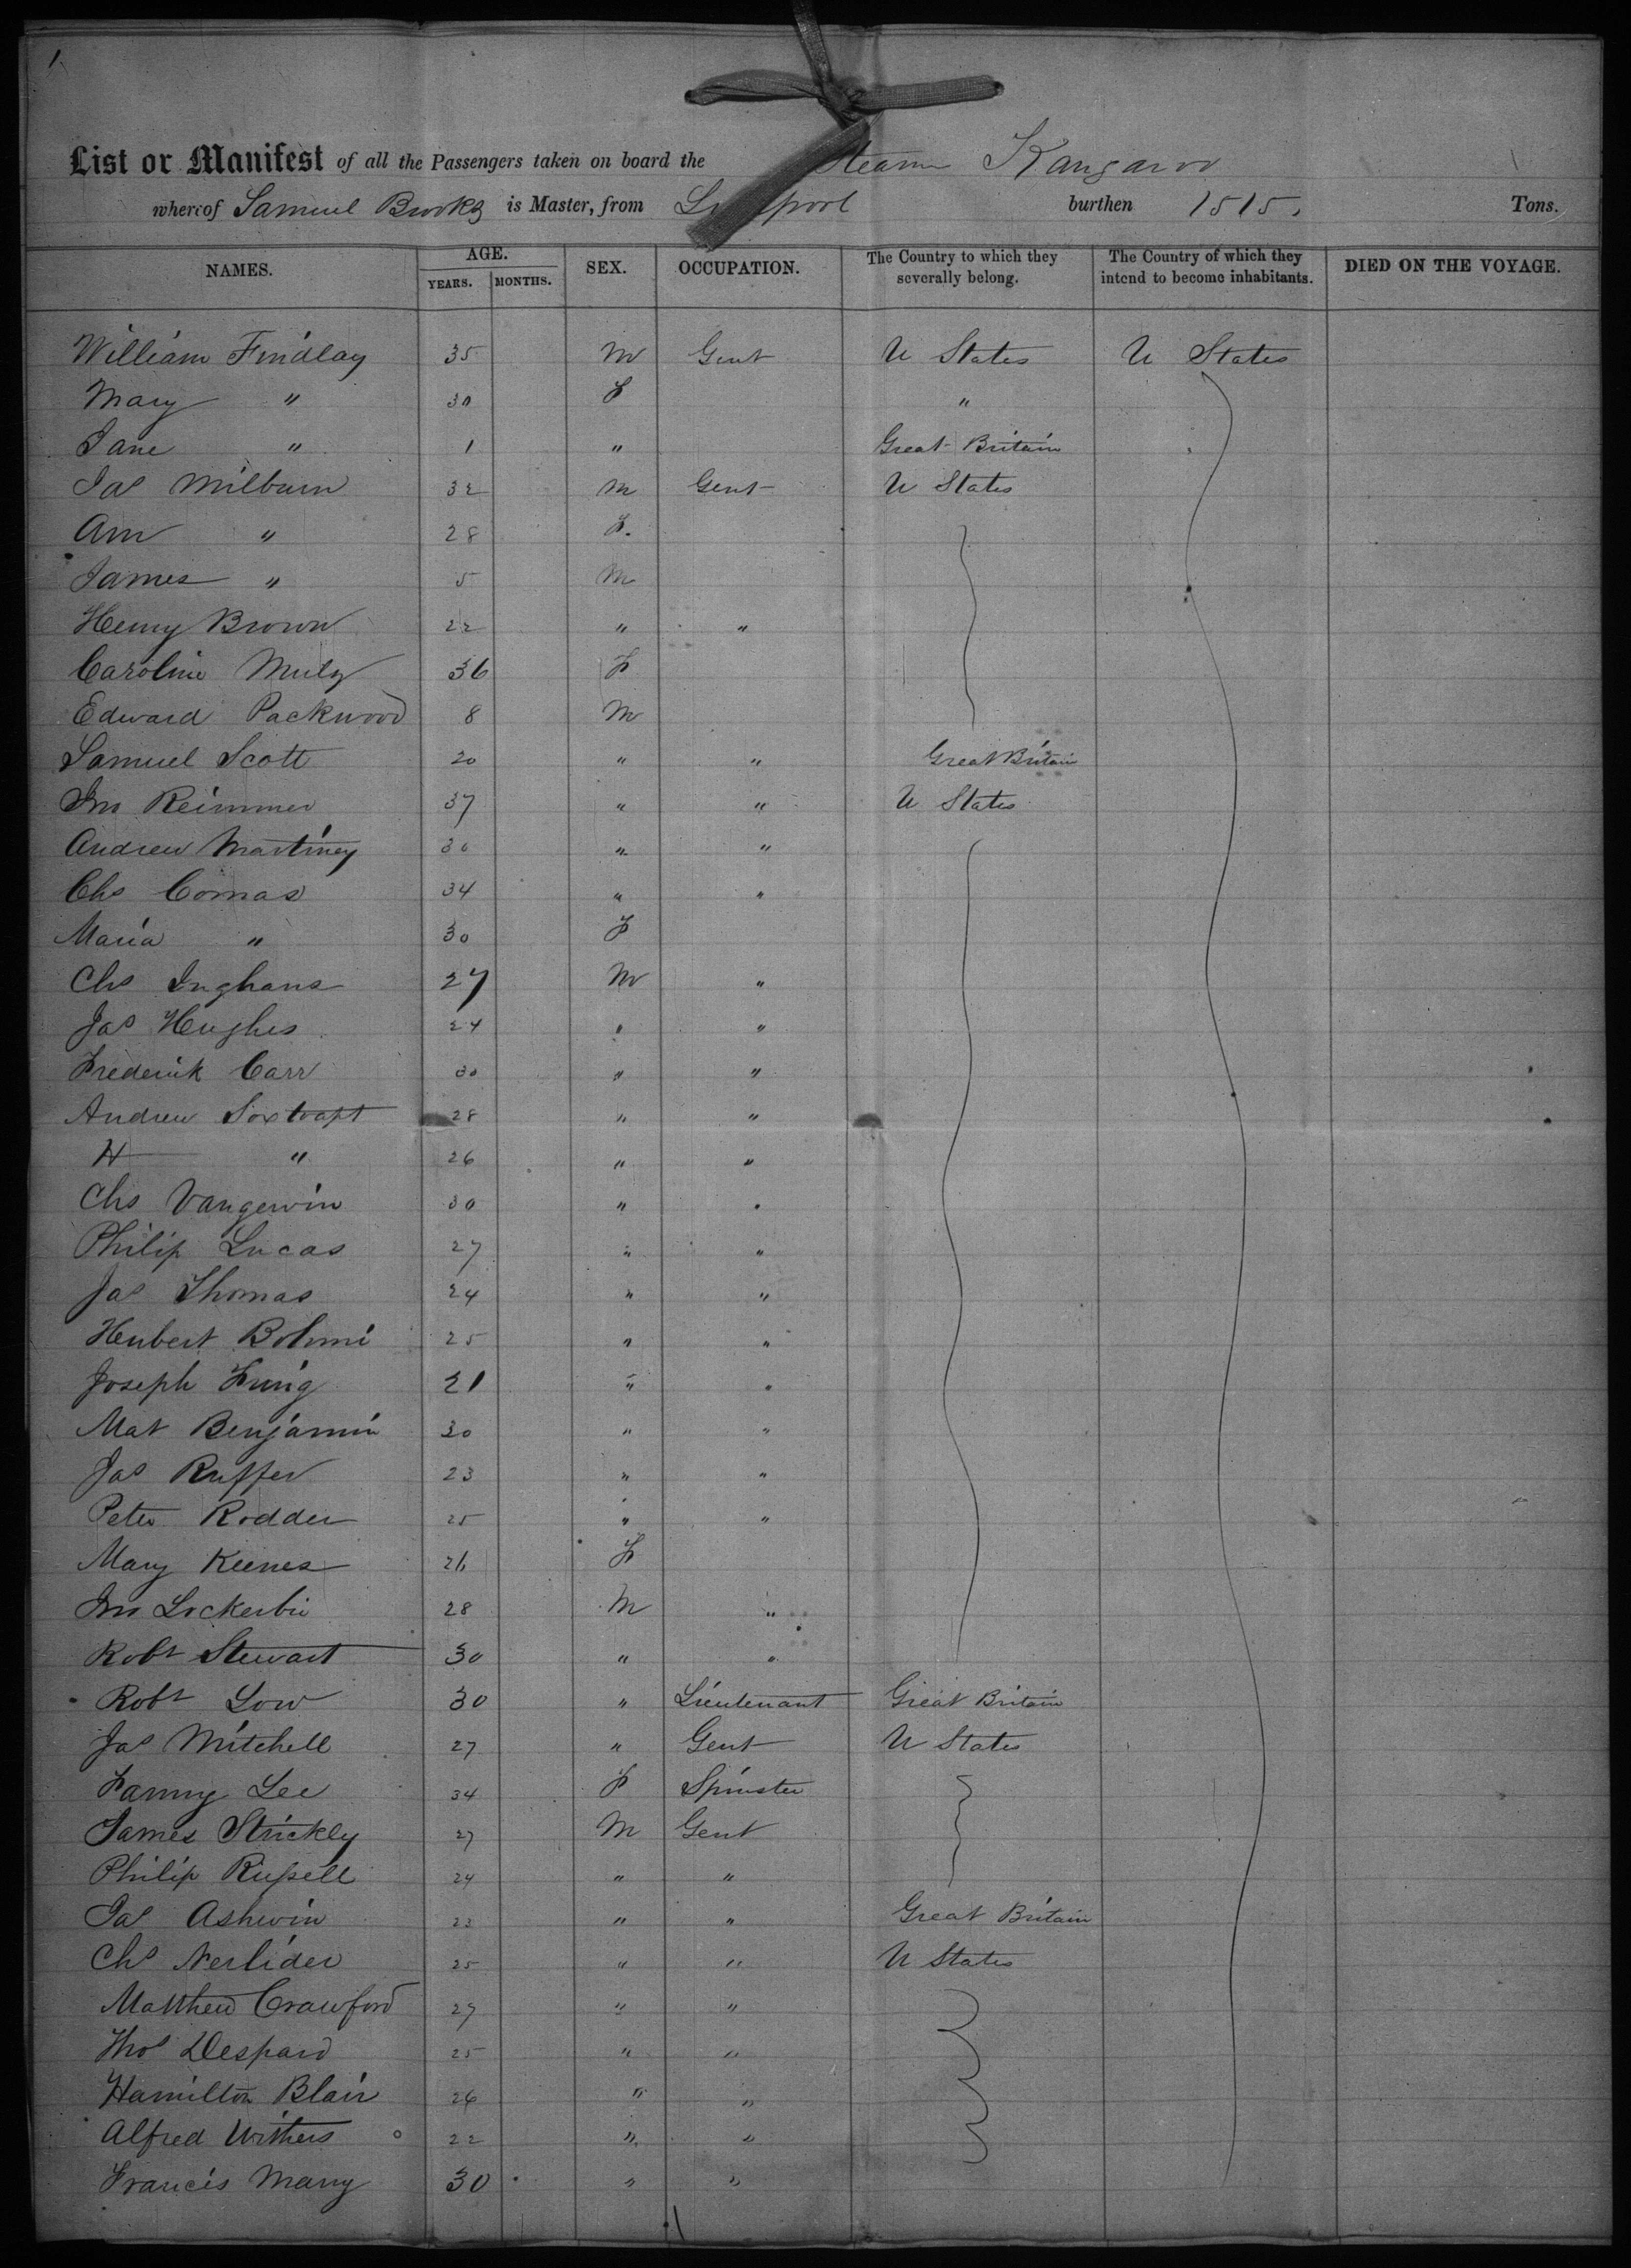 1
List or Manifest of all the Passengers taken on board the Steam Kangaroo
whereof Samuel Brooks is Master, from Liverpool burthen 1515. Tons.
NAMES. AGE. YEARS. MONTHS. SEX. OCCUPATION. The Country to which they severally belong. The Country of which they intend to become inhabitants. DIED ON THE VOYAGE.
William Findlay 35 M Gent U States U States
Mary " 30 F "
Jane " 1 " Great Britain
Jas Milburn 32 M Gent U States
Ann " 28 F.
James " 5 M
Henry Brown 22 " "
Caroline 36 F
Edward Packwood 8 M
Samuel Scott 20 " " Great Britain
Jno Reimmer 37 " " U States
Andrew Martiney 30 " "
Chs Comas 34 " "
Maria " 30 F
Chs Inghans 27 M "
Jas Hughes 24 " "
Frederick Carr 30 " "
Andrew 28 " "
H " 26 " "
Chs Vangerwin 30 " "
Philip Lucas 27 " "
Jas Thomas 24 " "
Herbert Bohmi 25 " "
Joseph 21 " "
Mat Benjamin 30 " "
Jas Ruffer 23 " "
Peter Rodder 25 " "
Mary Keenes 26 F
Jno Lockerbie 28 M "
Robt Stewart 30 " "
Robt Low 30 " Lieutenant Great Britain
Jas Mitchell 27 " Gent U States
Fanny Lee 34 F Spinster
James Strickley 27 M Gent
Philip Russell 24 " "
Jas Ashwin 22 " " Great Britain
Chs Nerlider 25 " " U States
Matthew Crawford 27 " "
Thos Despard 25 " "
Hamilton Blair 26 " "
Alfred Withers 22 " "
Francis Many 30 " "